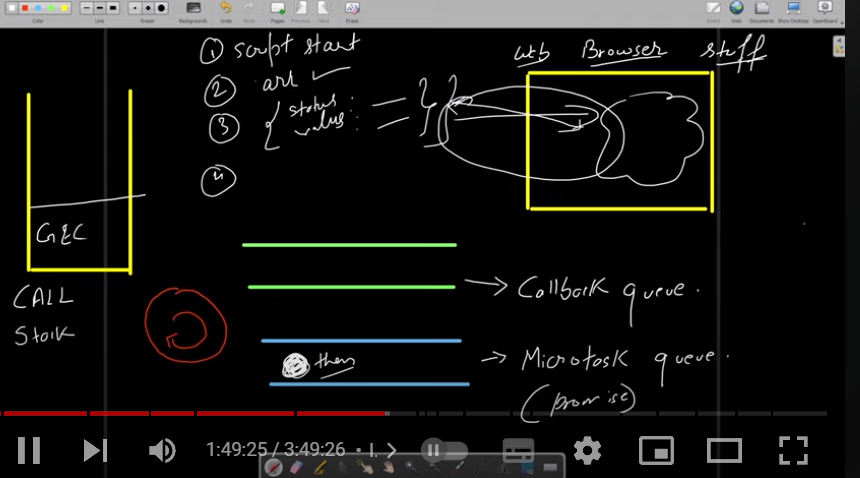 Color
Line
Eraser
Backgrounds
Undo
Redo
Pages
Previous
Next
Erase
Board
Web
Documents
Show Desktop
OpenBoard
① script start
② arl ✓
③ { status : —
value : = }
④
Web Browser stuff
GEC
CALL
Stack
→ Callback queue.
then
→ Microtask queue.
(promise)
1:49:25 / 3:49:26 • I. >